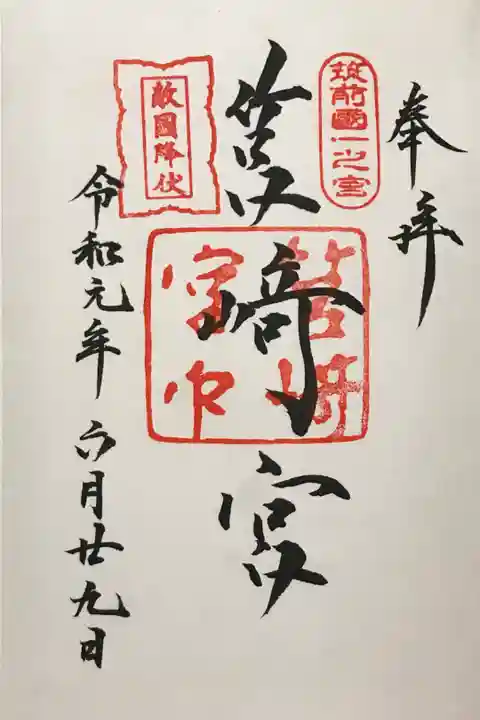 奉拝
筑前國一之宮
筥崎宮
筥崎
宮印
敵國降伏
令和元年六月廿九日